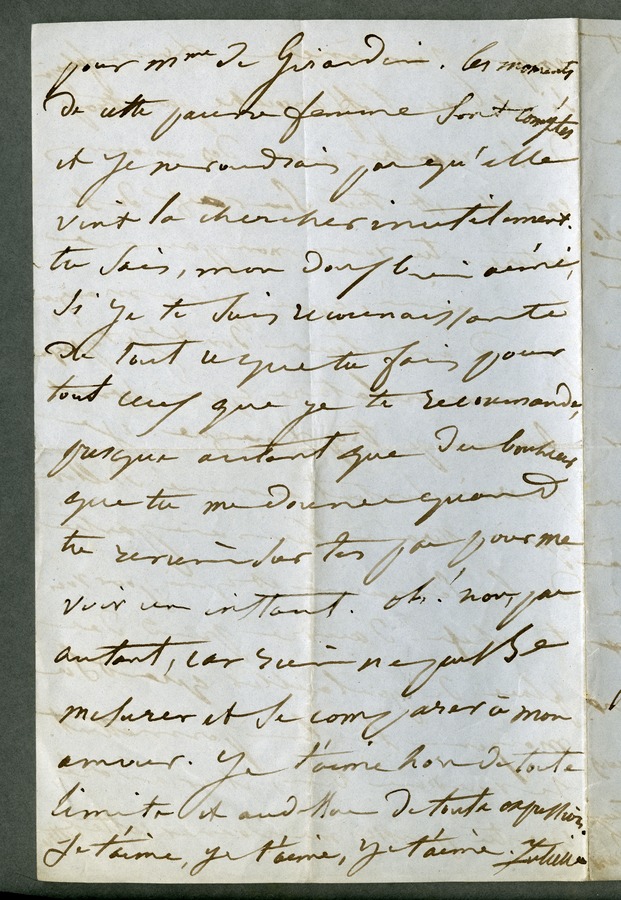 pour mme de Girardin. les moments
de cette pauvre femme sont comptés
et je ne voudrais pas qu'elle
vint la chercher inutilement.
tu sais, mon doux bien aimé,
si je te suis reconnaissante
de tout ce que tu fais pour
tout ceux que je te recommande,
presque autant que du bonheur
que tu me donnes quand
tu reviens sur tes pas pour me
voir un instant. oh! non, pas
autant, car rien ne peut se
mesurer et se comparer à mon
amour. Je t'aime hors de toute
limite et au delà de toute expression.
Je t'aime, je t'aime, je t'aime. Juliette